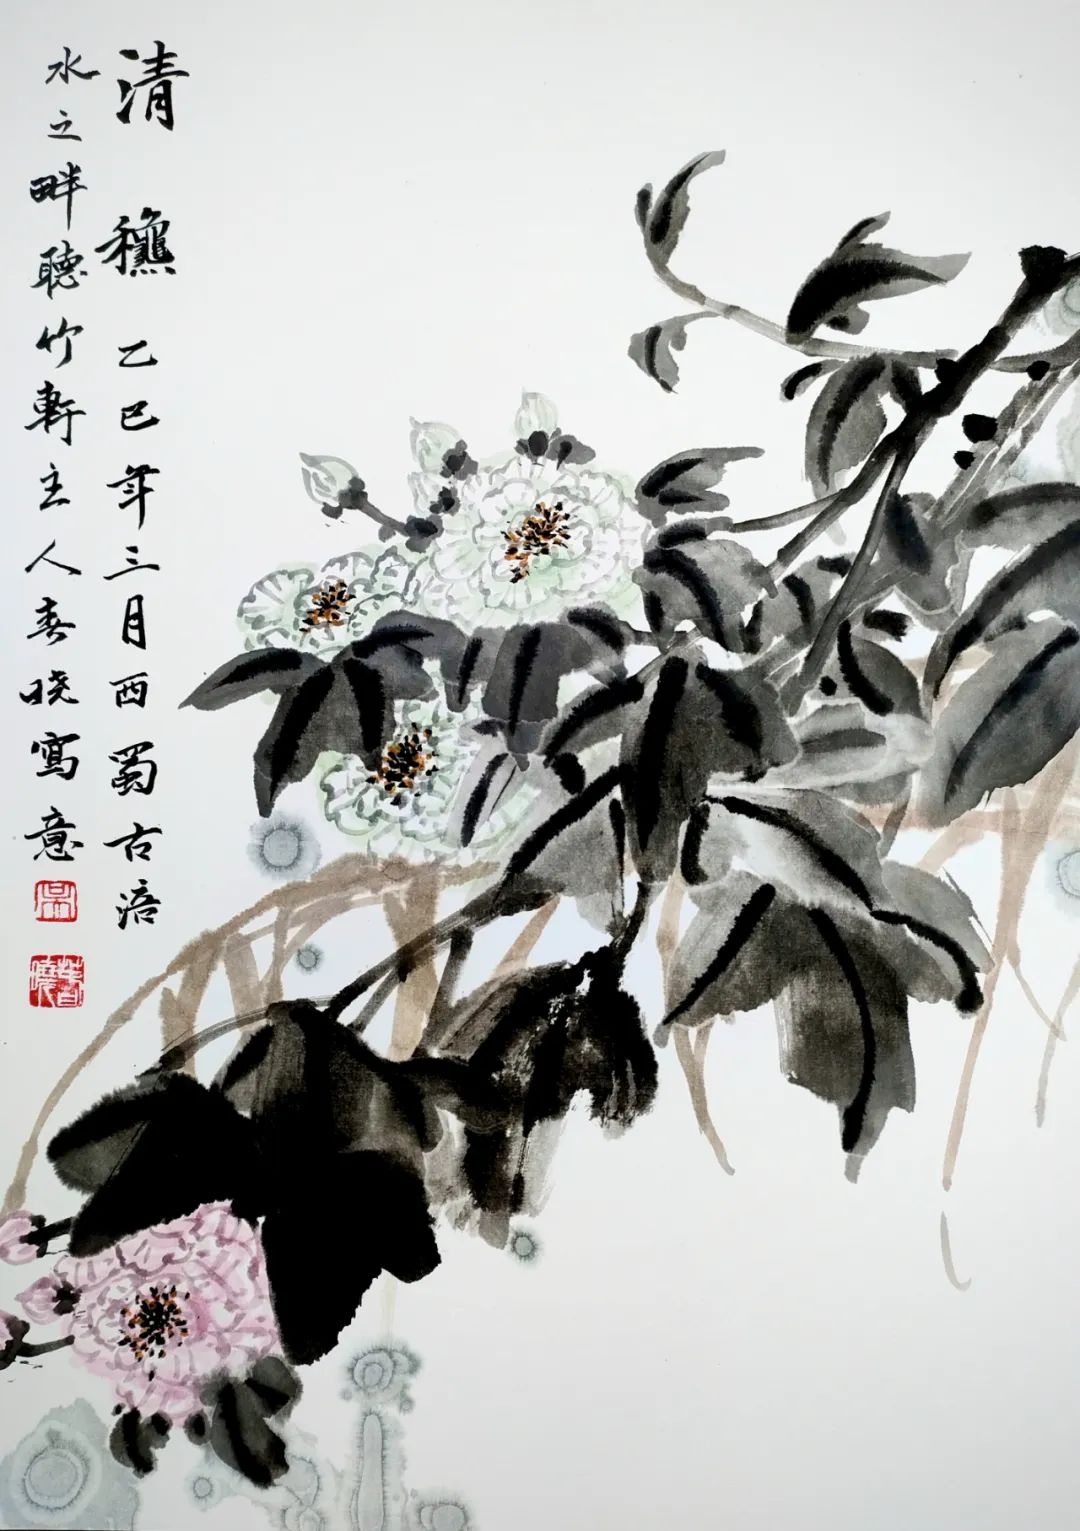 清穐 乙巳年三月西蜀古涪
水之畔聽竹軒主人春晓寫意
吴
春曉